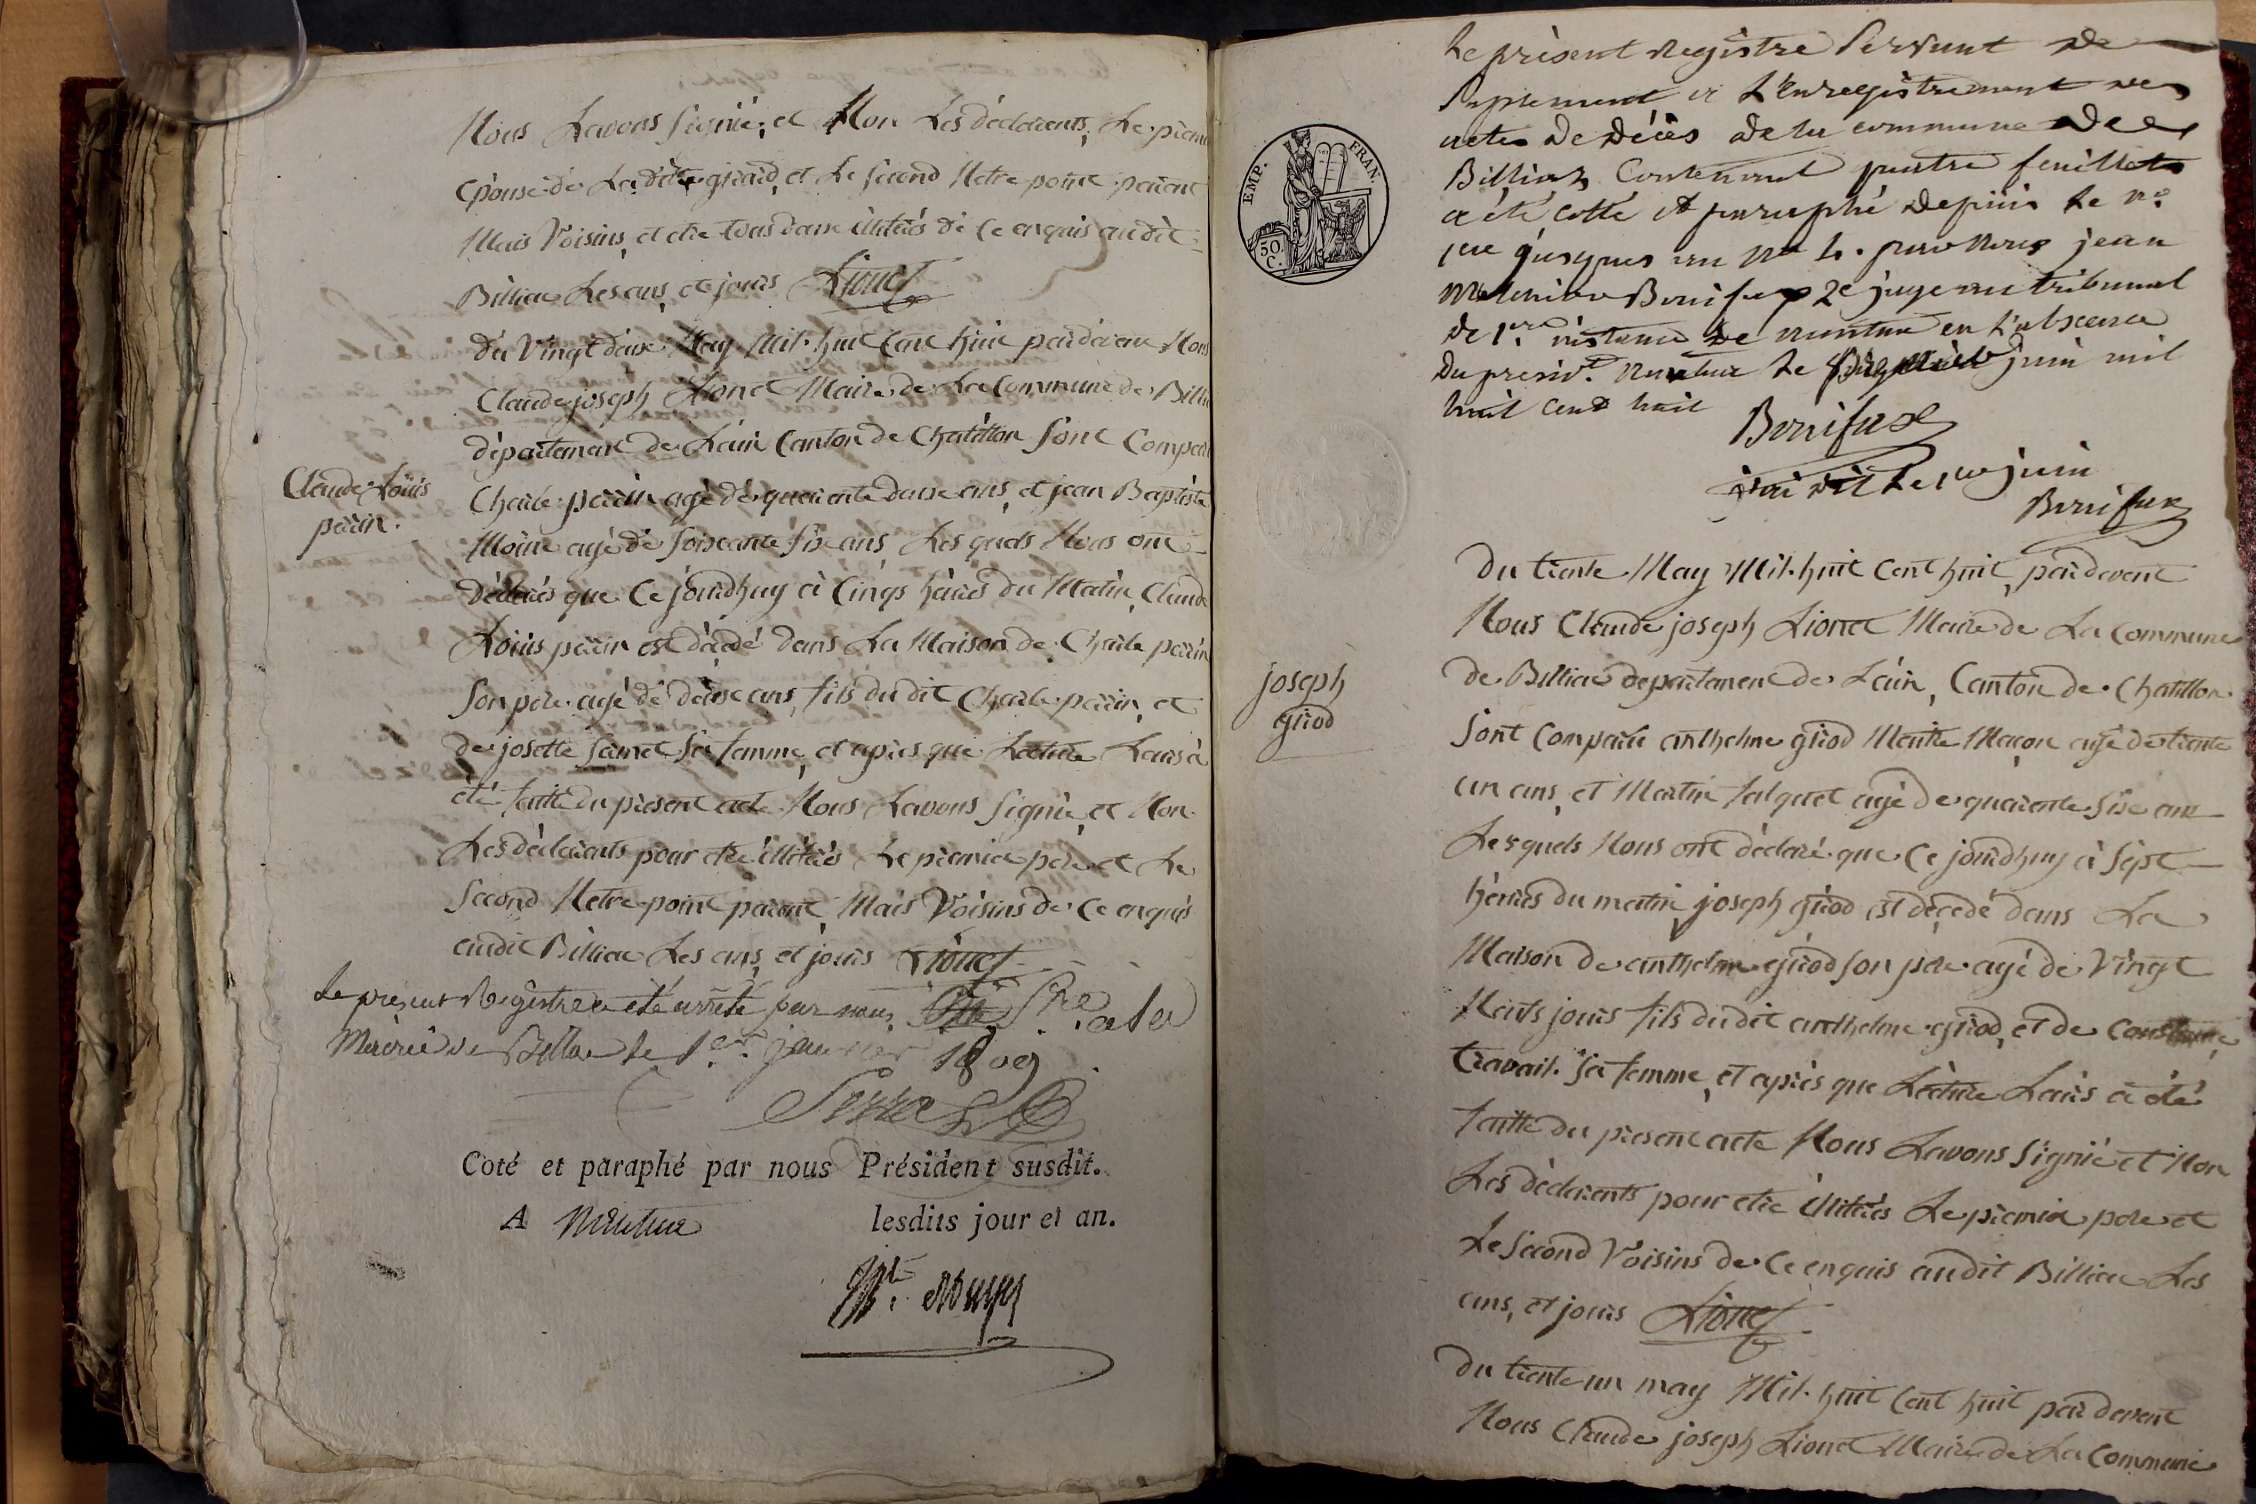 Nous Lavons signié, et Non Les déclarents, Le premie
épousé de La dite griaud, et Le second Netre point parent
Mais Voisins, et etre tous deux illitérés de ce enquis audit
Billiac Les ans, et jours Lionet
du Vingt deux May Mil huit Cent huit pardevent Nous
Claude joseph Lionet Maire de La Commune de Billia
département de Lain Canton de Chatillon Sont Compar
Claude Louis
périn.
Charle périn agé de quarente deuse ans, et jean Baptiste
Moine agé de soiscante sis ans Les quels Nous ont
Déclarés que Ce jourdhuy à Cinqs heures du Matin, Claude
Louis périn est décédé dans La Maison de Charle périn
Son pere agé de deuse ans, fils du dit Charle périn, et
de josette jamet Sa femme, et après que Lecture Leurs à
été faitte du présent acte Nous Lavons Signié, et Non
Les déclarents pour etre illitérés Le premier pere et Le
Second Netre point parent, Mais Voisins de Ce enquis
audit Billiac Les ans, et jours Lionet
Le présent Registre a été arrêté par nous à la
Mairie de Billia le 1er janvier 1809
Coté et paraphé par nous Président susdit.
A Nantua lesdits jour et an.
Le présent Registre Servant de
Suplement à L'Enregistrement des
actes De Décès De la commune De
Billiaz Contenant quatre feuillets
a été cotté et paraphé depuis Le n°
1er jusques au N° 4. par Nous jean
Bonifax 2e juge au tribunal
de 1re instance de nantua en L'absence
du présidt. Nantua Le juin mil
huit cent huit
Bonifax
1er juin
Bonifax
EMP. FRAN.
50 C.
du trente May Mil huit Cent huit, pardevent
Nous Claude joseph Lionet Maire de La Commune
joseph
griod
de Billiac departement de Lain, Canton de Chatillon
Sont Comparu anthelme griod Maitre Maçon agé de trente
un ans, et Martin falquet agé de quarente sise ans
Lesquels Nous ont déclaré que Ce jourdhuy à Sept
heures du matin joseph griod est décedé dans La
Maison de anthelme griod son pere agé de Vingt
Neufs jours fils du dit anthelme griod, et de
travail Sa femme, et après que Lecture Leurs à été
faitte du present acte Nous Lavons Signié et Non
Les déclarents pour etre illitérés Le premier pere et
Le Second Voisins de Ce enquis audit Billiac Les
ans, et jours Lionet
Du trente un may Mil huit Cent huit pardevent
Nous Claude joseph Lionet Maire de La Commune